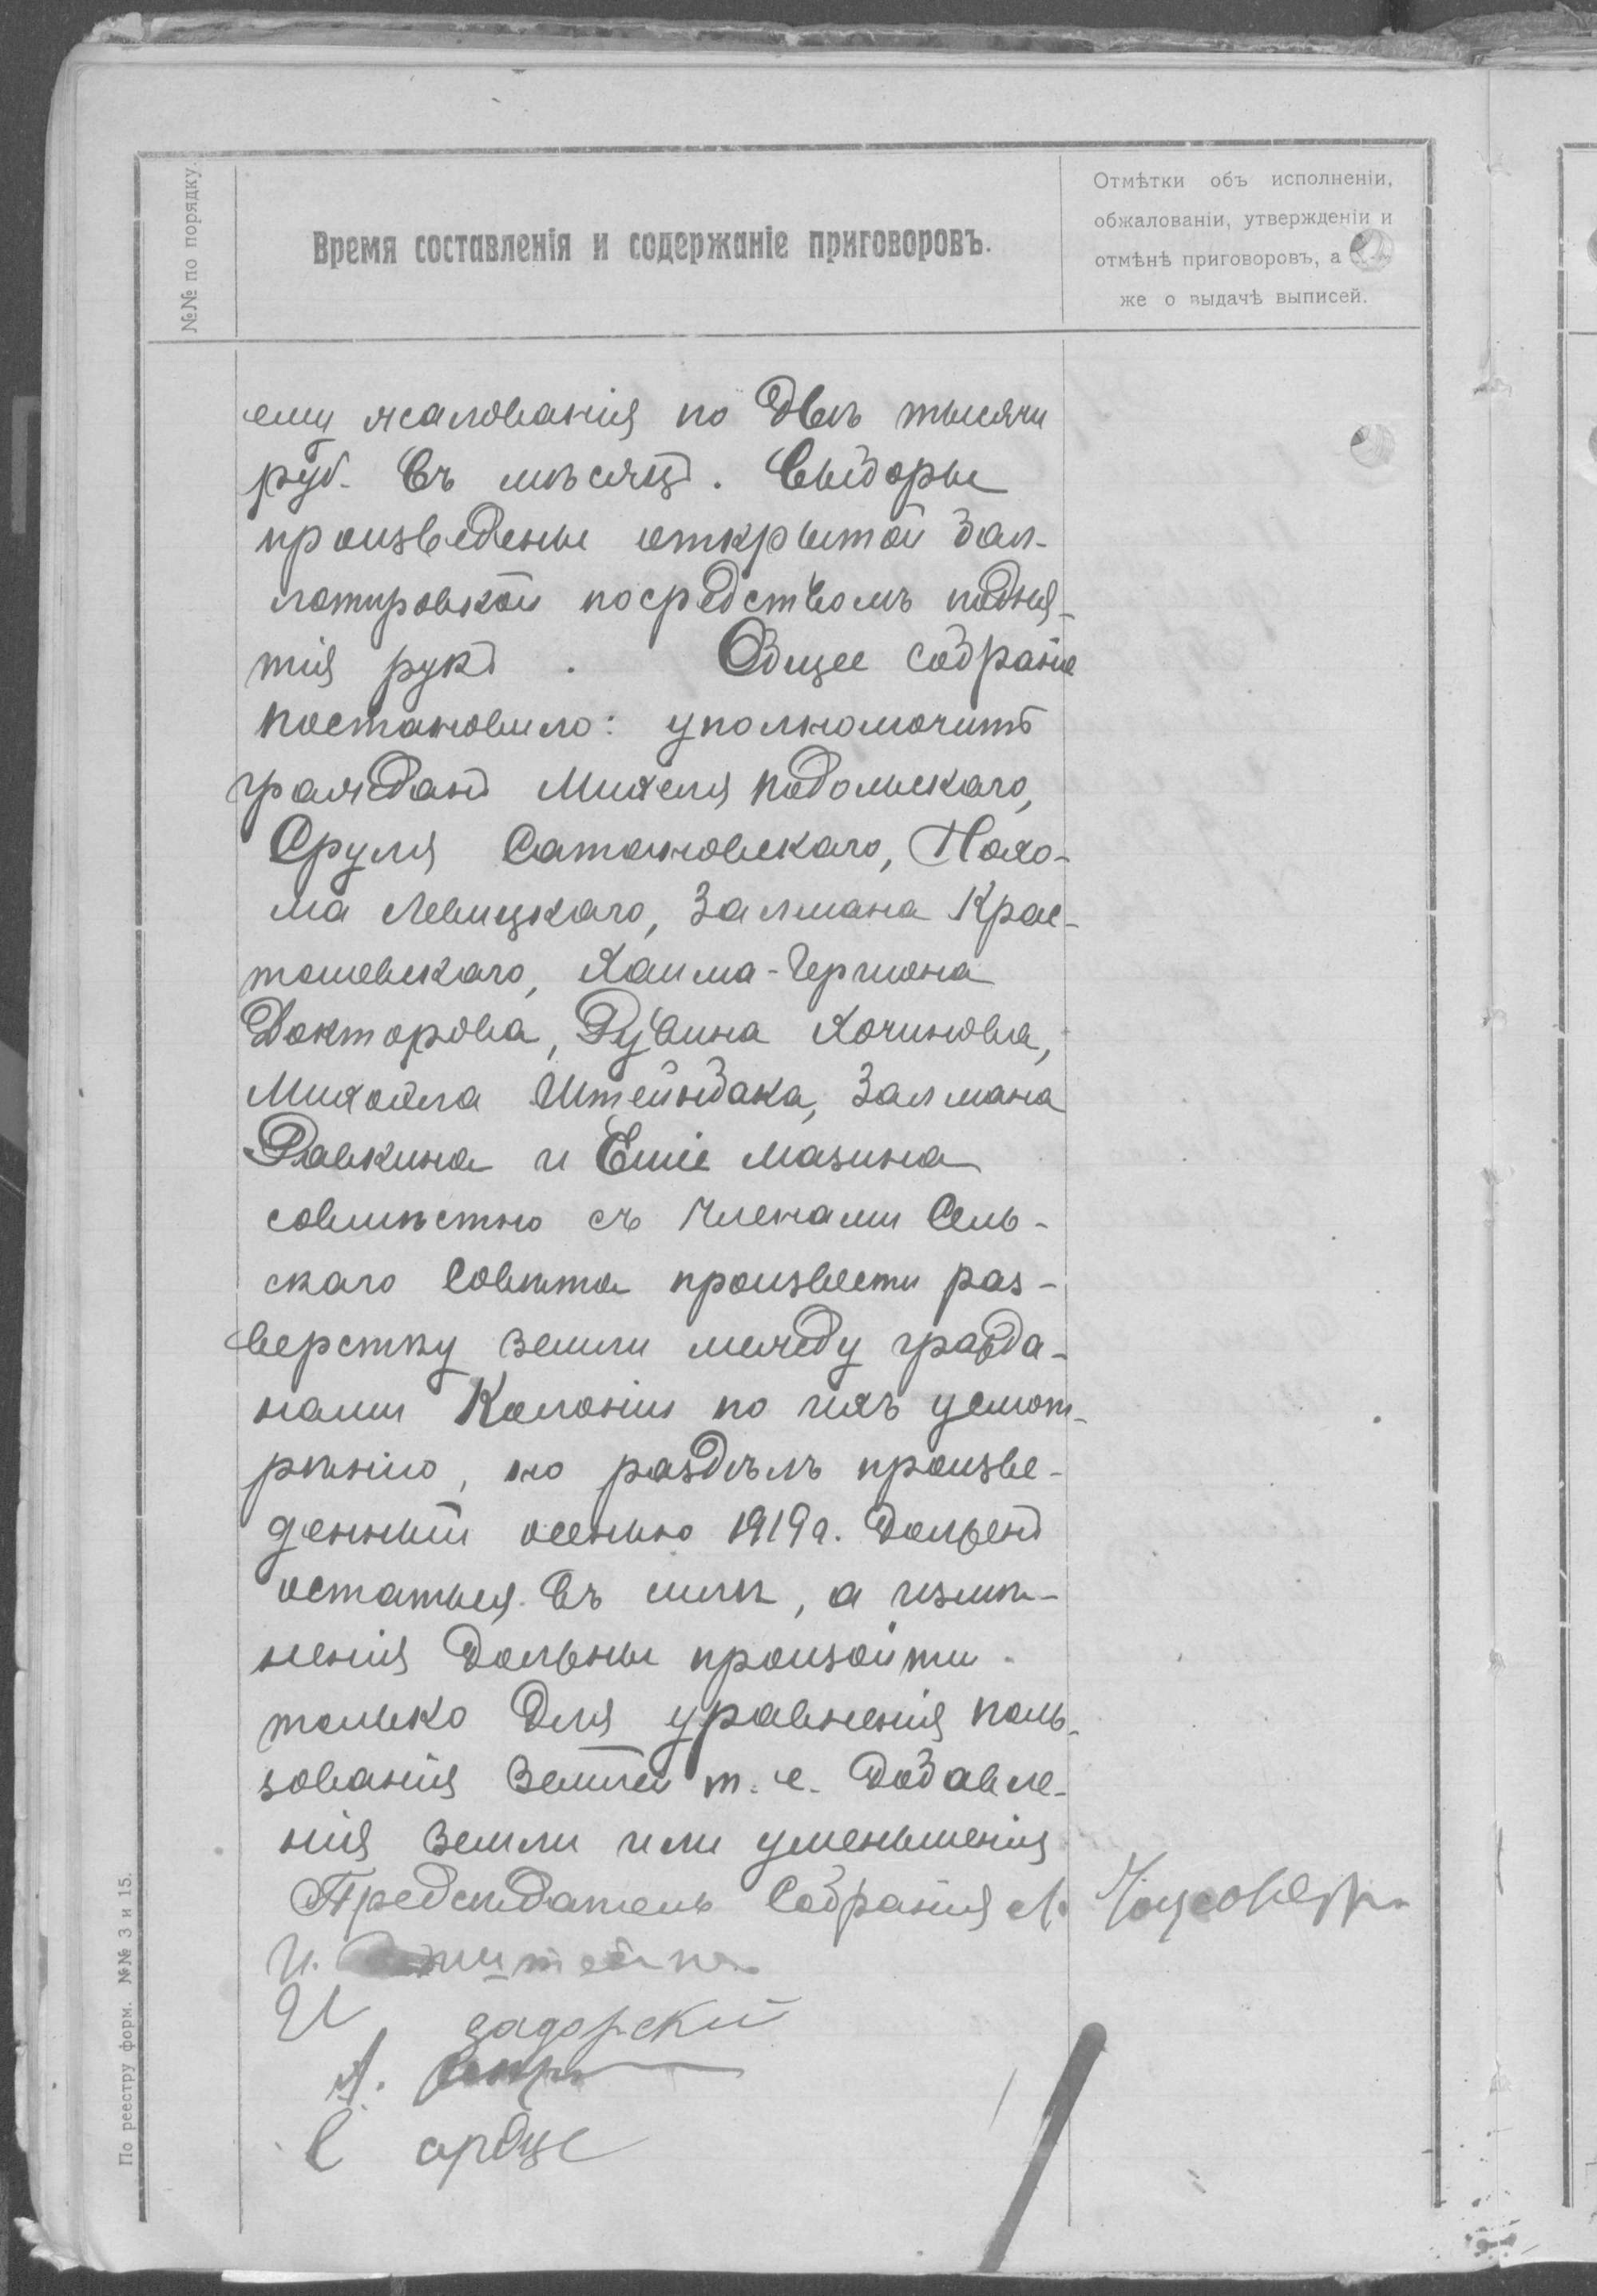 №№ по порядку.
Время составленія и содержаніе приговоровъ.
Отмѣтки объ исполненіи,
обжалованіи, утвержденіи и
отмѣнѣ приговоровъ, а
же о выдачѣ выписей.
ему жалованія по двѣ тысячи
руб. въ мѣсяцъ. Выборы
произведены открытой бал-
лотировкой посредствомъ подня-
тія рукъ. Общее собраніе
постановило: уполномочить
гражданъ Михеля Подольскаго,
Сруля Сатановскаго, Нохо-
ма Левицкаго, Залмана Крас-
тошевскаго, Хаима-Гершона
Докторова, Рувина Хочинова,
Михоэла Штейнбака, Залмана
Равкина и Ешіе Мазина
совмѣстно съ членами Сель-
скаго Совѣта произвести раз-
верстку земли между гражда-
нами Колоніи по ихъ усмот-
рѣнію, но раздѣлъ произве-
денный осенью 1919 г. долженъ
остаться въ силѣ, а измѣ-
ненія должны произойти
только для уравненія поль-
зованія землей т. е. добавле-
нія земли или уменьшенія
Предсѣдатель Собранія
И.
И задорскій
А.
С
По реестру форм. №№ 3 и 15.